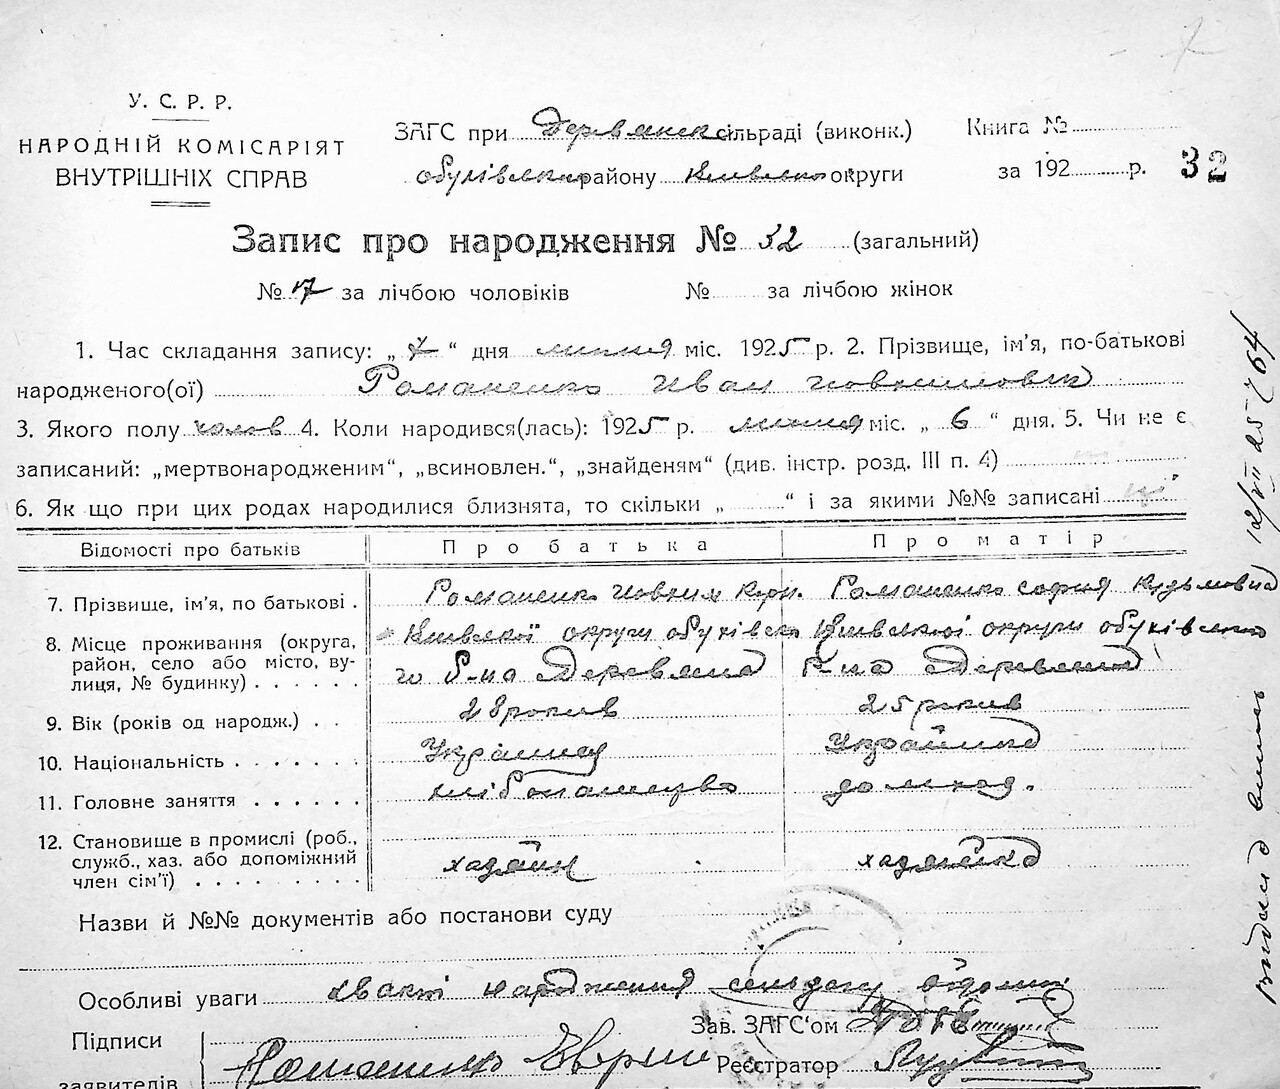 У. С. Р. Р.
НАРОДНІЙ КОМІСАРІЯТ
ВНУТРІШНІХ СПРАВ
ЗАГС при Деревянск сільраді (виконк.)
обухівском району Київской округи
Книга №
за 192 р. 32
Запис про народження № 32 (загальний)
№ 17 за лічбою чоловіків № за лічбою жінок
1. Час складання запису: „ 7 “ дня липня міс. 1925 р. 2. Прізвище, ім'я, по-батькові
народженого(ої) Романенко Иван
3. Якого полу чолов 4. Коли народився(лась): 1925 р. липня міс. „ 6 “ дня. 5. Чи не є
записаний: „мертвонародженим“, „всиновлен.“, „знайденям“ (див. інстр. розд. III п. 4)
6. Як що при цих родах народилися близнята, то скільки „ “ і за якими №№ записані ні
Відомості про батьків Про батька Про матір
7. Прізвище, ім'я, по батькові . Романенко Романенко София Кузьмовна
8. Місце проживання (округа, Київскої округи обухівско Київскої округи обухівского
район, село або місто, ву- го р-на Деревяна р-на Деревяна
лиця, № будинку) . . . . . .
9. Вік (років од народж.) . . 28 рокив 25 рокив
10. Національність . . . . . . . Україниц Українка
11. Головне заняття . . . . . . хліборашество домход.
12. Становище в промислі (роб.,
служб., хаз. або допоміжний хазяин хазяйка
член сім'ї) . . . . . . . . .
Назви й №№ документів або постанови суду
Особливі уваги народження
Зав. ЗАГС'ом
Підписи
заявителів Романенко
Реєстратор
видано 12/VII 25 764